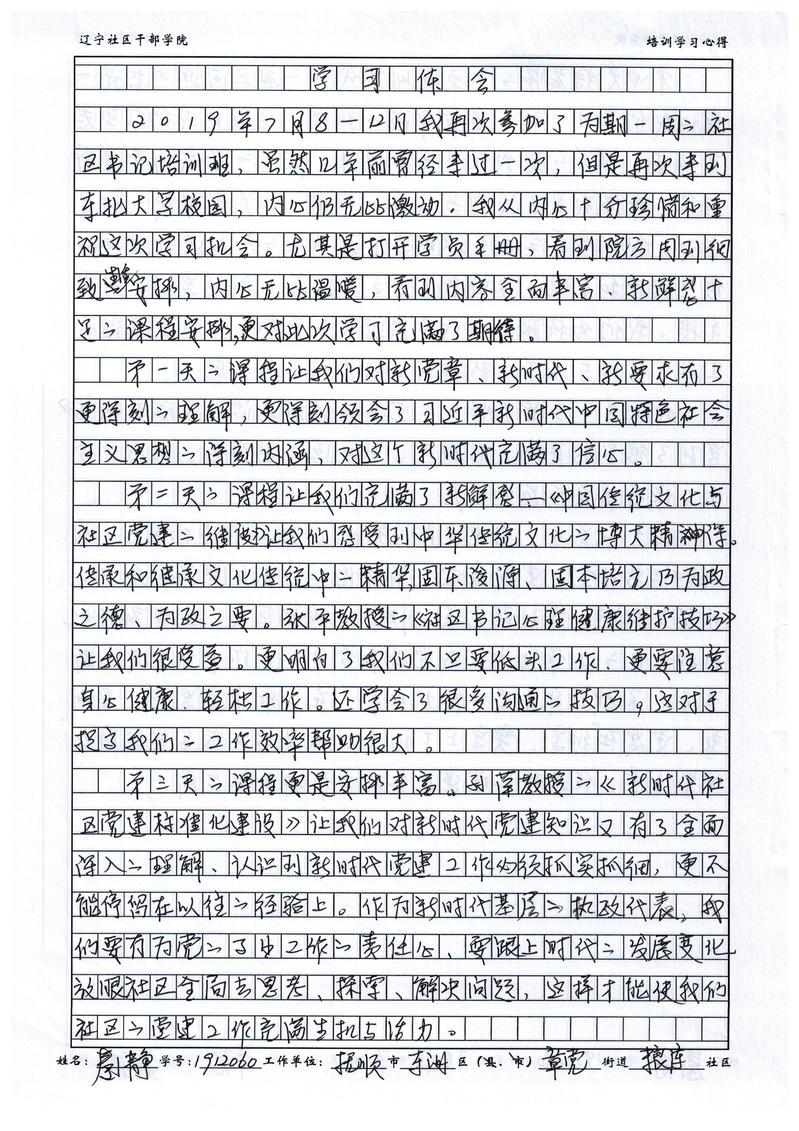 辽宁社区干部学院 培训学习心得
学习体会
2019年7月8-12日我再次参加了为期一周的社
区书记培训班，虽然几年前曾经来过一次，但是再次来到
东北大学校园，内心仍无比激动。我从内心十分珍惜和重
视这次学习机会。尤其是打开学员手册，看到院方周到细
致安排，内心无比温暖，看到内容全面丰富、新鲜感十
足的课程安排，更对此次学习充满了期待。
第一天的课程让我们对新党章、新时代、新要求有了
更深刻的理解，更深刻领会了习近平新时代中国特色社会
主义思想的深刻内涵，对这个新时代充满了信心。
第二天的课程让我们充满了新鲜感—《中国传统文化与
社区党建的维护》让我们感受到中华传统文化的博大精神深。
传承和继承文化传统中的精华，固本浚源、固本培元乃为政
之德、为政之要。张平教授的《社区书记心理健康维护技巧》
让我们很受益。更明白了我们不只要低头工作，更要注意
身心健康，轻松工作。还学会了很多沟通的技巧，这对于
提高我们的工作效率帮助很大。
第三天的课程更是安排丰富。孙萍教授的《新时代社
区党建标准化建设》让我们对新时代党建知识又有了全面
深入的理解、认识到新时代党建工作必须抓实抓细，更不
能停留在以往的经验上。作为新时代基层的执政代表，我
们要有为党的工作的责任心，要跟上时代的发展变化
放眼社区全局去思考、探索、解决问题，这样才能使我们
社区的党建工作充满生机与活力。
姓名：静 学号：1912060 工作单位：抚顺市 东洲 区（县、市） 章党 街道 社区